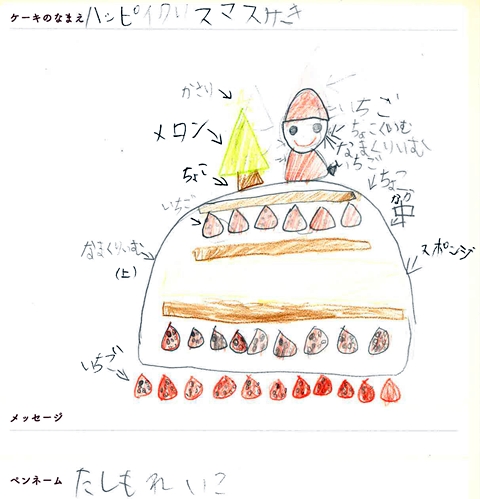 ケーキのなまえ ハッピイクリスマスケーき
かさり
メロン
いちご
ちょこくいむ
なまくりいむ
いちご
ちょこ
ちょこ
いちご
なか
中
スポンジ
なまくりいむ
(上)
いちご
メッセージ
ペンネーム たしもれいこ